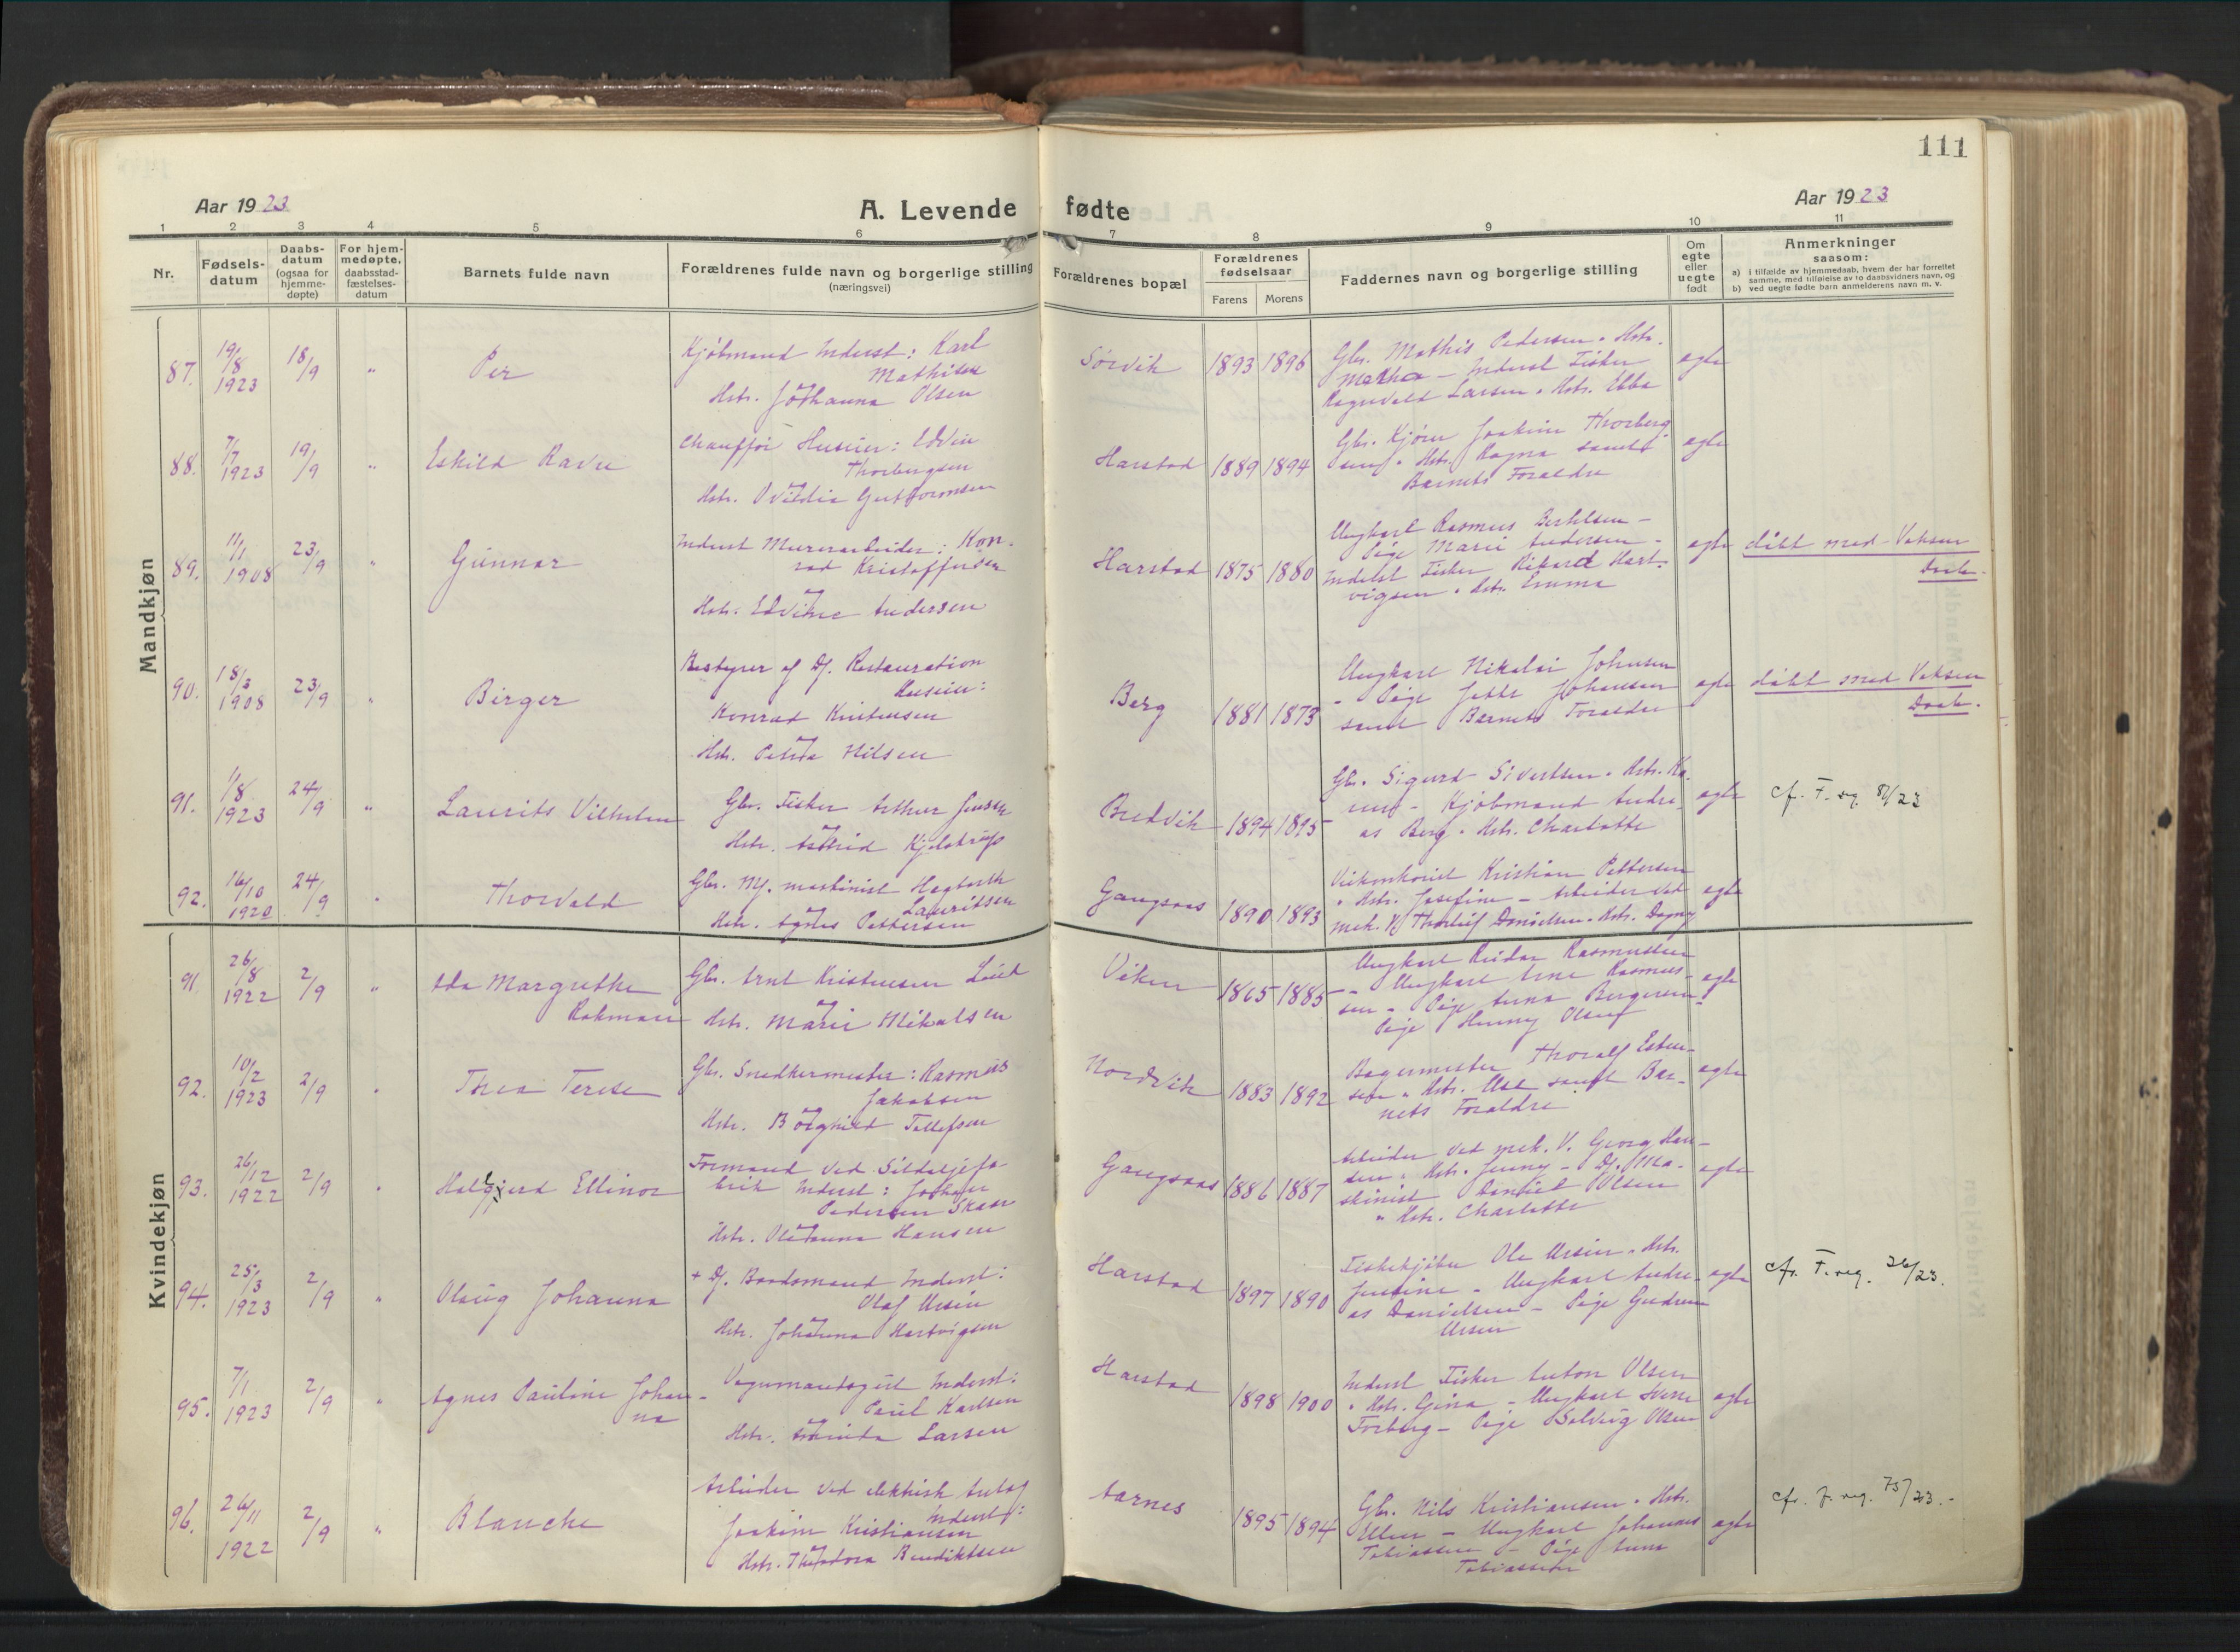 111
Aar 1923
A. Levende
fødte
Aar 1923
1 2 3 4 5 6 7 8 9 10 11
Nr.
Fødsels-
datum
Daabs-
datum
(ogsaa for
hjemme-
døpte)
For hjem-
medøpte,
daabsstad-
fæstelses-
datum
Barnets fulde navn
Forældrenes fulde navn og borgerlige stilling
(næringsvei)
Forældrenes bopæl
Forældrenes
fødselsaar
Farens
Morens
Faddernes navn og borgerlige stilling
Om
egte
eller
uegte
født
Anmerkninger
saasom:
a) i tilfælde av hjemmedaab, hvem der har forrettet
samme, med tilføielse av to daabsvidners navn, og
b) ved uegte fødte barn anmelderens navn m. v.
Mandkjøn
87. 19/8 1923 18/9 " Per
Kjøbmand Inderst: Karl
Mathisen
Hstr. Johanna Olsen
Sørvik 1893 1896
Gbr. Mathis Pedersen " Hstr.
Martha – Inderst Fisker
Ragnvald Larsen " Hstr. Ebba
egte
88. 7/7 1923 19/9 " Eskild Ravn
Chauffør Huseier: Edvin
Thorbergsen
Hstr. Ovidia Guttormsen
Harstad 1889 1894
Gbr. Kjøren Joakim Thorberg
sen " Hstr. Ragna samt
Barnets Forældre
egte
89. 11/1 1908 23/9 " Gunnar
Inderst Murerarbeider: Kon-
rad Kristoffersen
Hstr. Edvine Andersen
Harstad 1875 1880
Ungkarl Rasmus Berthsen –
Pige Marie Andersen –
Inderst Fisker Rikard Hart-
vigsen " Hstr. Emma
egte
døbt med Voksen
Daab.
90. 18/3 1908 23/9 " Birger
Bestyrer af Df. Restauration
Huseier:
Konrad Kristensen
Hstr. Petra Nilsen
Berg 1881 1873
Ungkarl Nikolai Johnsen
– Pige Jette Johansen
samt Barnets Forældre
egte
døbt med Voksen
Daab.
91. 1/8 1923 24/9 " Laurits Vilhelm
Gbr. Fisker Arthur Jensen
Hstr. Astrid Kjelstrup
Bredvik 1894 1895
Gbr. Sigurd Sivertsen " Hstr. Ka
– Kjøbmand Andre-
as Berg " Hstr. Charlotte
egte
cfr. F. reg. /23
92. 16/10 1920 24/9 " Thorvald
Gbr. Mf. maskinist Hagbarth
Lauritsen
Hstr. Agnes Pettersen
Gangsaas 1890 1893
Kristian Pettersen
" Hstr. Josefine – Arbeider ved
mek. V. Thorleif Danielsen " Hstr. Dagny
egte
Kvindekjøn
91. 26/8 1922 2/9 " Ada Margrethe
Rokman
Gbr. Arnt Kristensen
Hstr. Marie Mikalsen
Viken 1865 1885
Ungkarl Reidar Rasmussen
– Ungkarl Arne Rasmus-
sen – Pige Anna Bergersen –
Pige Henny Olsen
egte
92. 10/2 1923 2/9 " Thea Terese
Gbr. Snedkermester: Rasmus
Jakobsen
Hstr. Borghild Tollefsen
Nordvik 1883 1892
Bagermester Thoralf Esben-
sen " Hstr. samt Bar-
nets Forældre
egte
93. 26/12 1922 2/9 " Halgjerd Ellinor
Formand ved Sildoljefa-
brik Inderst: Johan
Pedersen Skaar
Hstr. Hansen
Gangsaas 1886 1887
Arbeider ved mek. V. Georg Han-
sen " Hstr. Jenny – Df. Ma-
skinist Daniel Olsen
" Hstr. Charlotte
egte
94. 25/3 1923 2/9 " Olaug Johanna
+ Df. Baadsmand Inderst:
Olaf Ursin
Hstr. Johanna Hartvigsen
Harstad 1897 1890
Fiskekjøber Ole Ursin " Hstr.
Justine – Ungkarl Andre-
as Danielsen – Pige Gudrun
Ursin
egte
cfr. F. reg. 26/23.
95. 7/1 1923 2/9 " Agnes Pauline Johan-
na
Vognmandsgut Inderst:
Paul Karlsen
Hstr. Larsen
Harstad 1898 1900
Inderst Fisker Anton Olsen
" Hstr. Gina – Ungkarl Sverre
Torberg – Pige Solveig Olsen
egte
96. 26/11 1922 2/9 " Blanche
Arbeider ved elektrisk Anlæg
Inderst:
Joakim Kristiansen
Hstr. Theodora Benediktsen
Aarnes 1895 1894
Gbr. Nils Kristiansen " Hstr.
Ellen – Ungkarl Johannes
Tobiassen – Pige Anna
Tobiassen
egte
cfr. F. reg. 75/23.-